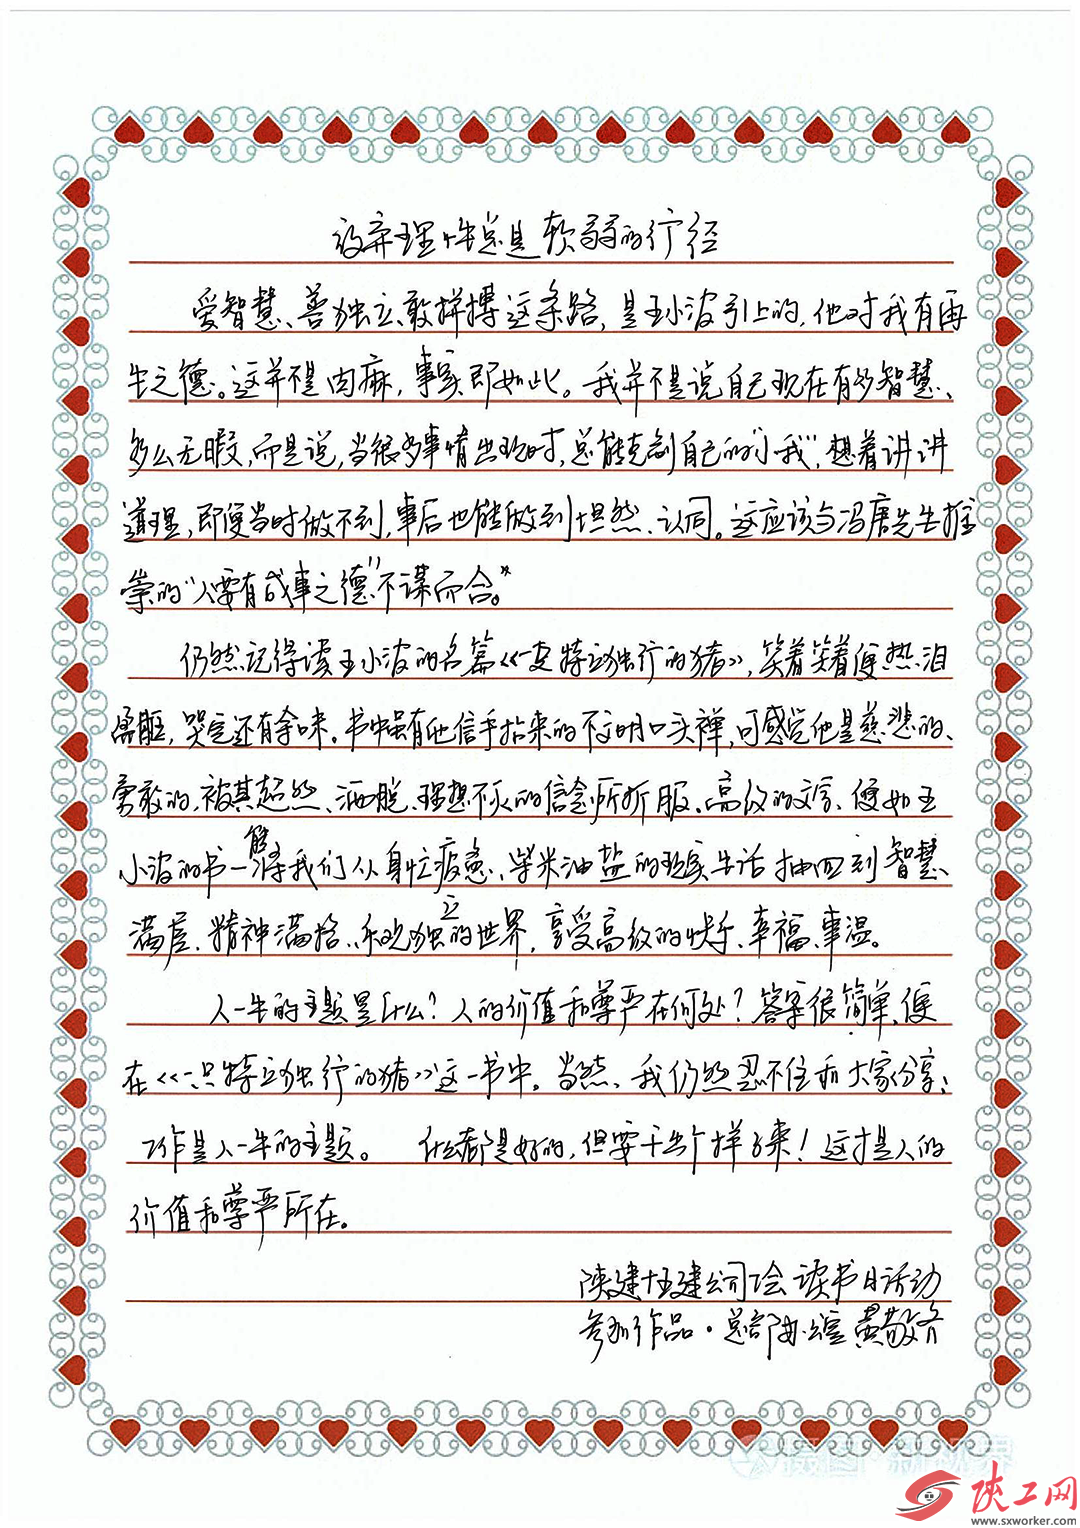 放弃理性总是软弱的行径
爱智慧、善独立、敢拼搏这条路，是王小波引上的，他对我有再
生之德。这并不是肉麻，事实即如此。我并不是说自己现在有多智慧、
多么无暇，而是说，当很多事情出现时，总能克制自己的“小我”，想着讲讲
道理，即便当时做不到，事后也能做到坦然、认同。这应该与冯唐先生推
崇的“人要有成事之德”不谋而合。
仍然记得读王小波的名篇《一只特立独行的猪》，笑着笑着便热泪
盈眶，哭完还有余味。书中虽有他信手拈来的不文明口头禅，可感觉他是慈悲的、
勇敢的，被其超然、洒脱、理想不灭的信念所折服。高级的文字、便如王
小波的书一般将我们从身忙疲惫、柴米油盐的现实生活抽回到智慧
满屋、精神满格、乐观独立的世界，享受高级的快乐、幸福、事温。
人一生的主题是什么？人的价值和尊严在何处？答案很简单，便
在《一只特立独行的猪》这一书中。当然，我仍然忍不住和大家分享：
工作是人一生的主题。 什么都是好的，但要干出个样子来！这才是人的
价值和尊严所在。
陕建十五建公司工会读书日活动
参加作品·总部办公室 黄敬齐
陕工网
www.sxworker.com